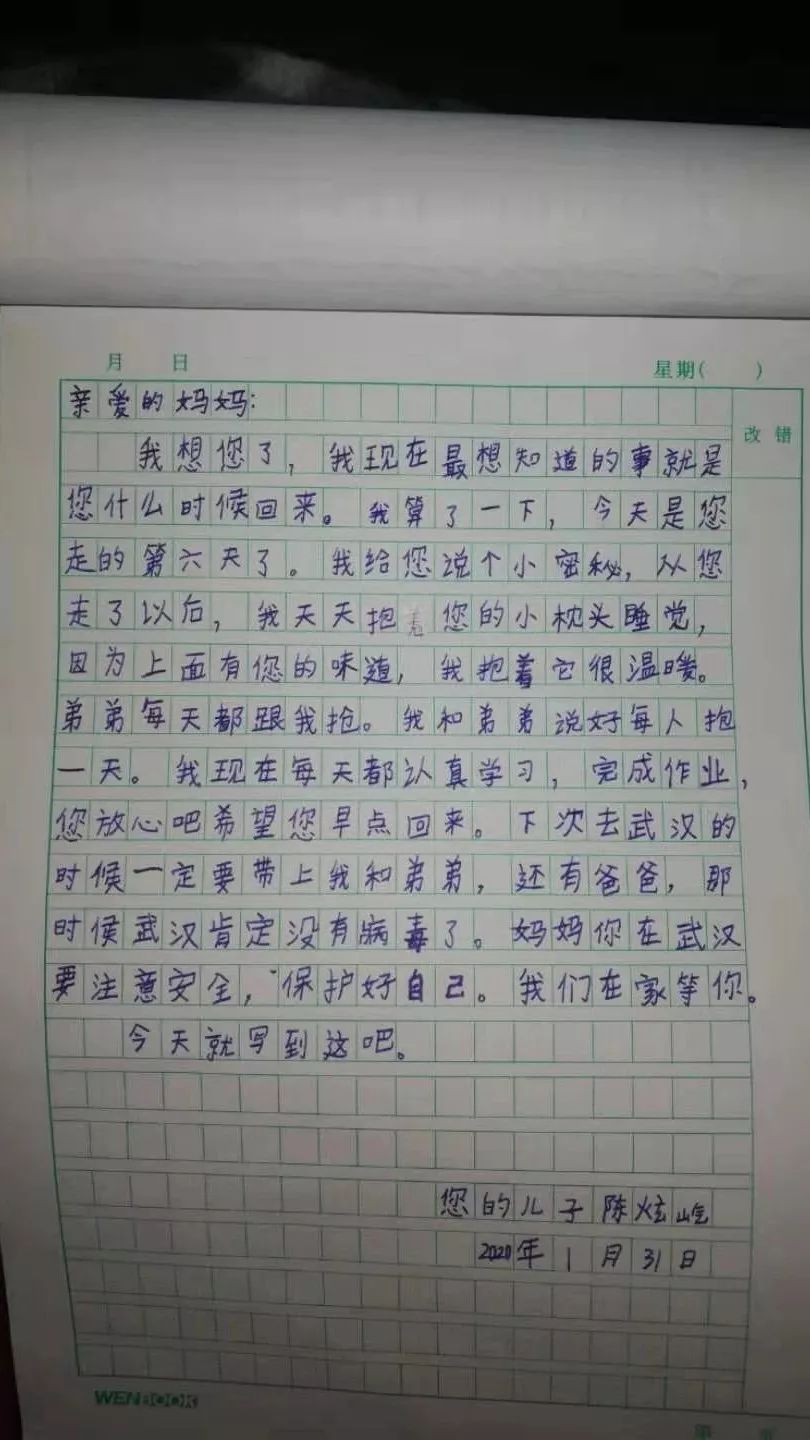 月 日 星期( )
亲爱的妈妈:
改错
我想您了，我现在最想知道的事就是
您什么时候回来。我算了一下，今天是您
走的第六天了。我给您说个小密秘，从您
走了以后，我天天抱着您的小枕头睡觉，
因为上面有您的味道，我抱着它很温暖。
弟弟每天都跟我抢。我和弟弟说好每人抱
一天。我现在每天都认真学习，完成作业，
您放心吧希望您早点回来。下次去武汉的
时候一定要带上我和弟弟，还有爸爸，那
时侯武汉肯定没有病毒了。妈妈你在武汉
要注意安全，保护好自己。我们在家等你。
今天就写到这吧。
您的儿子陈炫
2020年1月31日
WENBOOK
第 页